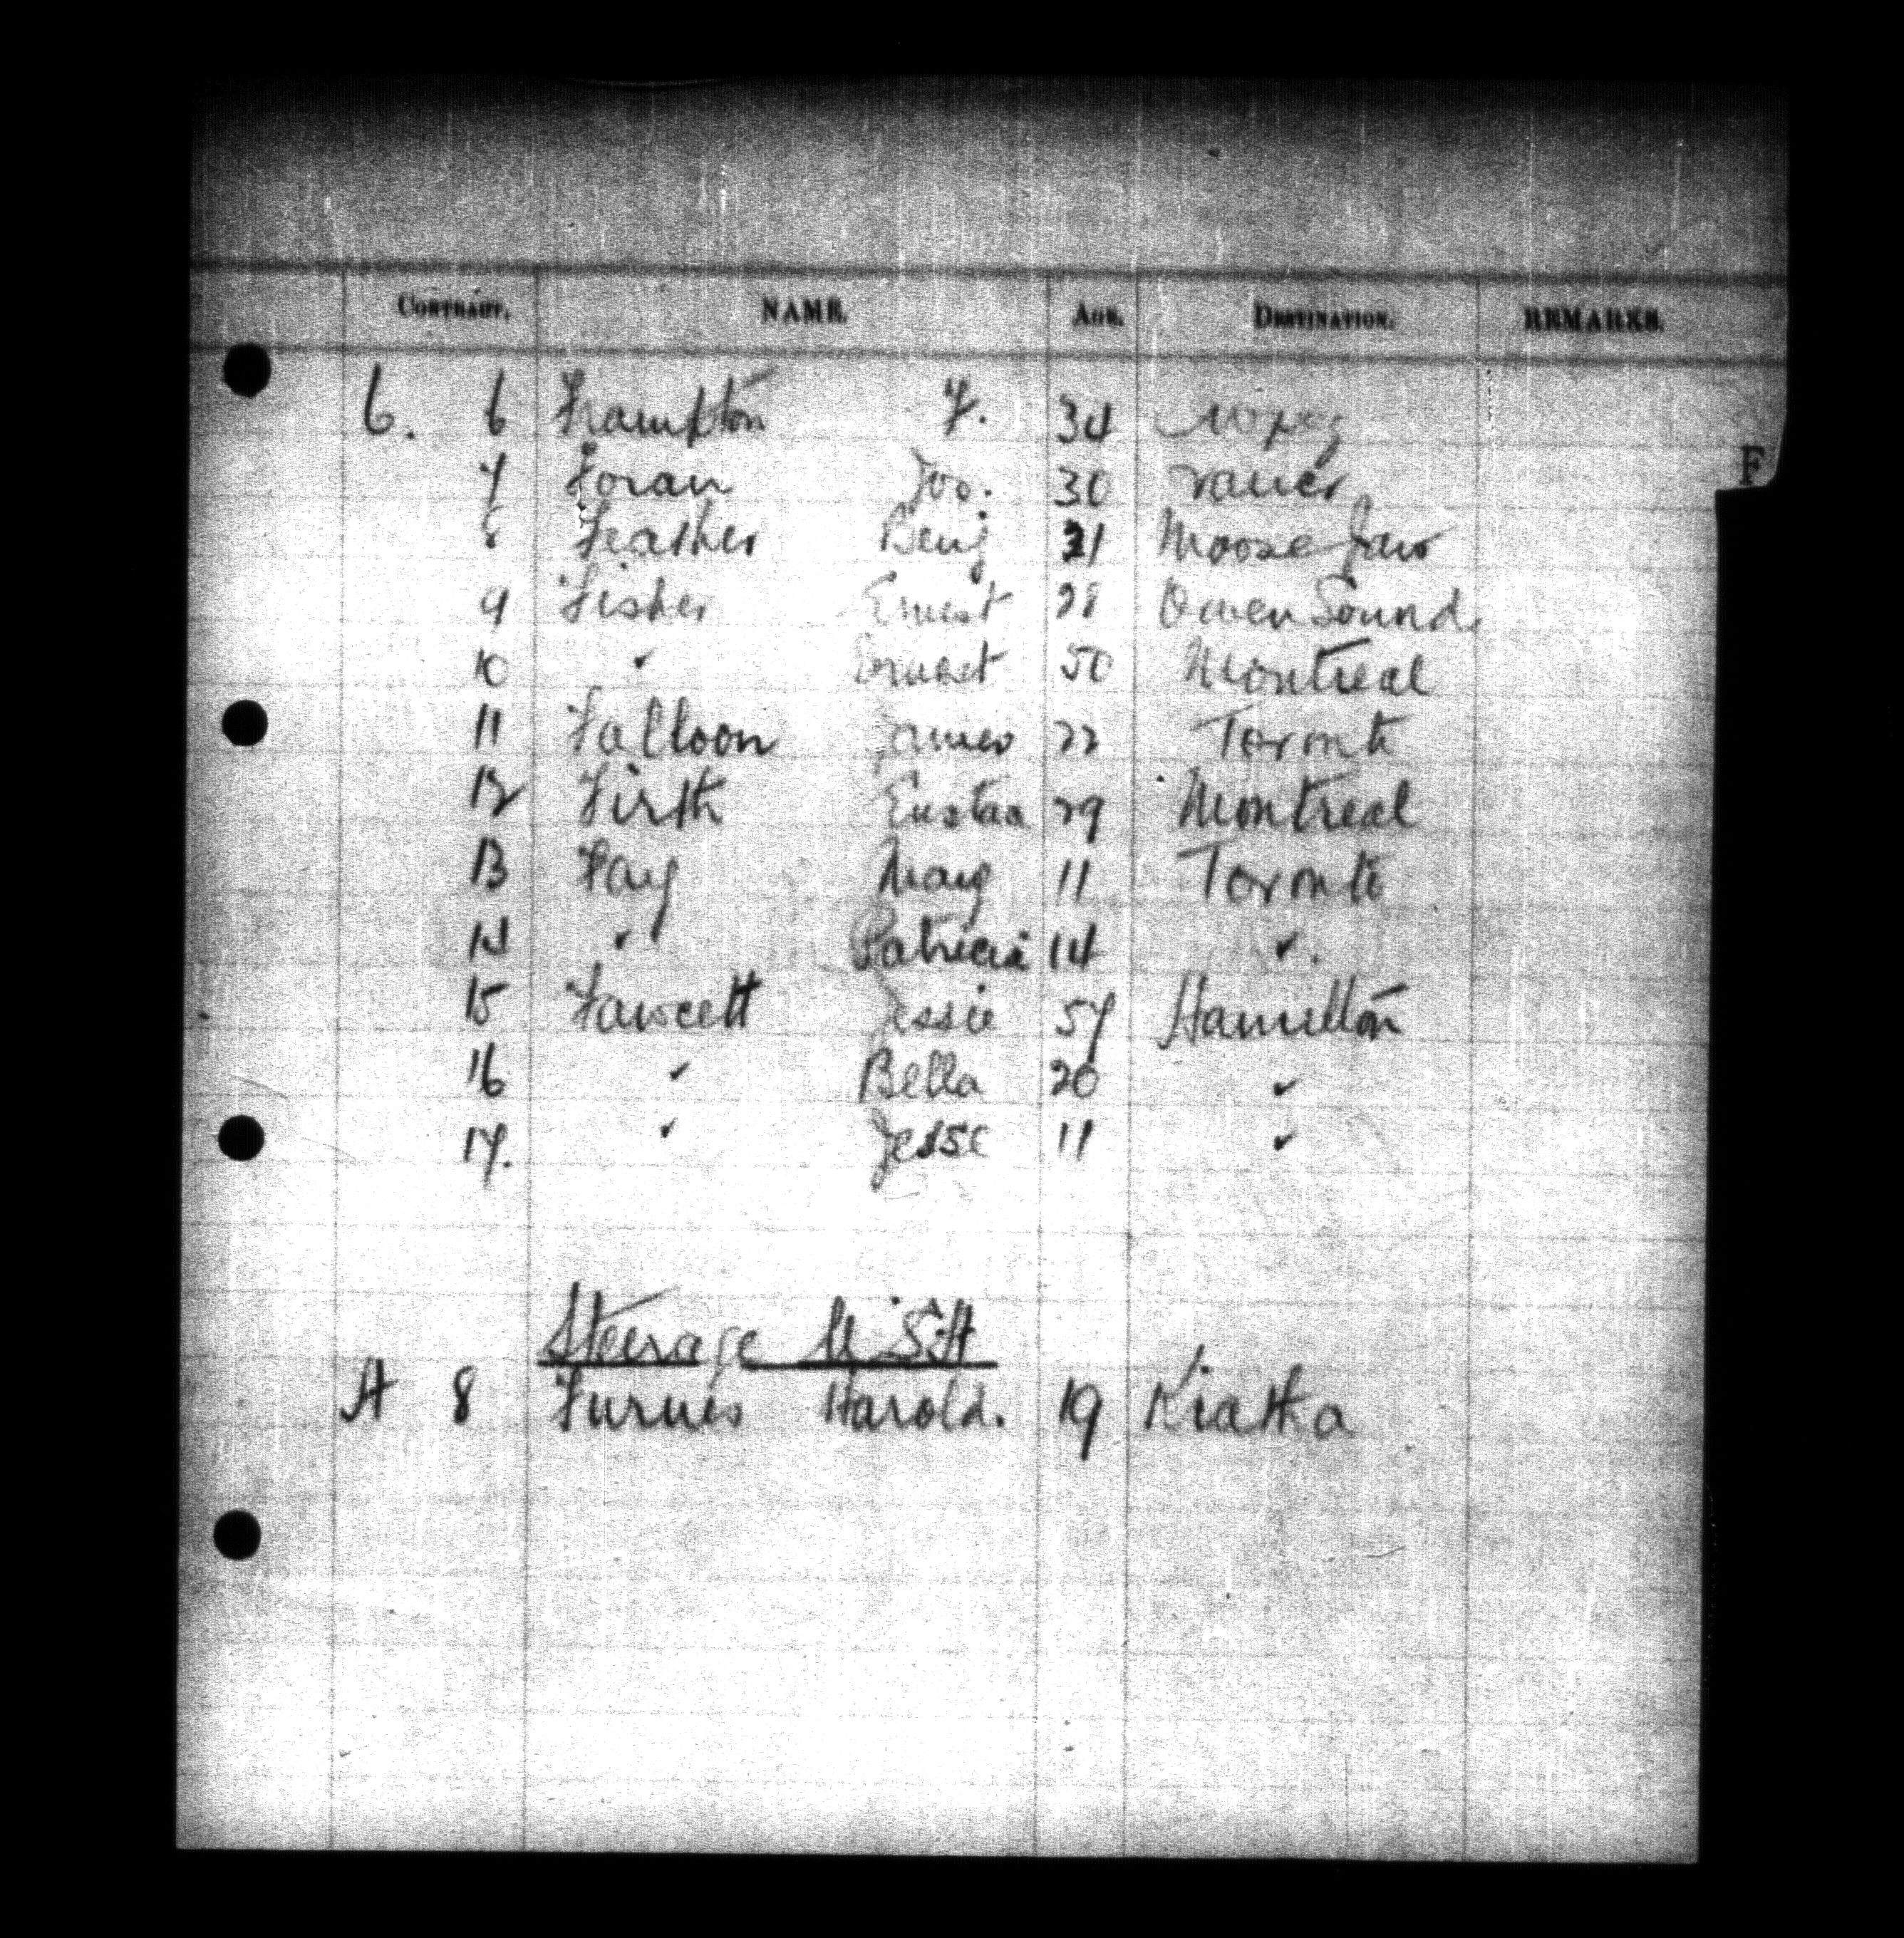 CONTRACT. NAME. AGE. DESTINATION. REMARKS.
6. 6 Frampton F. 34 Wpeg
F
7 Foran Jos. 30 Vancr
8 Feather Benj 31 Moose Jaw
9 Fisher Ernest 28 Owen Sound
10 " Ernest 50 Montreal
11 Falloon James 22 Toronto
12 Firth Eustace 29 Montreal
13 Fay Mary 11 Toronto
14 " Patricia 14 "
15 Fawcett Jessie 57 Hamilton
16 " Bella 20 "
17. " Jesse 11 "
Steerage U.S.A
A 8 Furnis Harold. 19